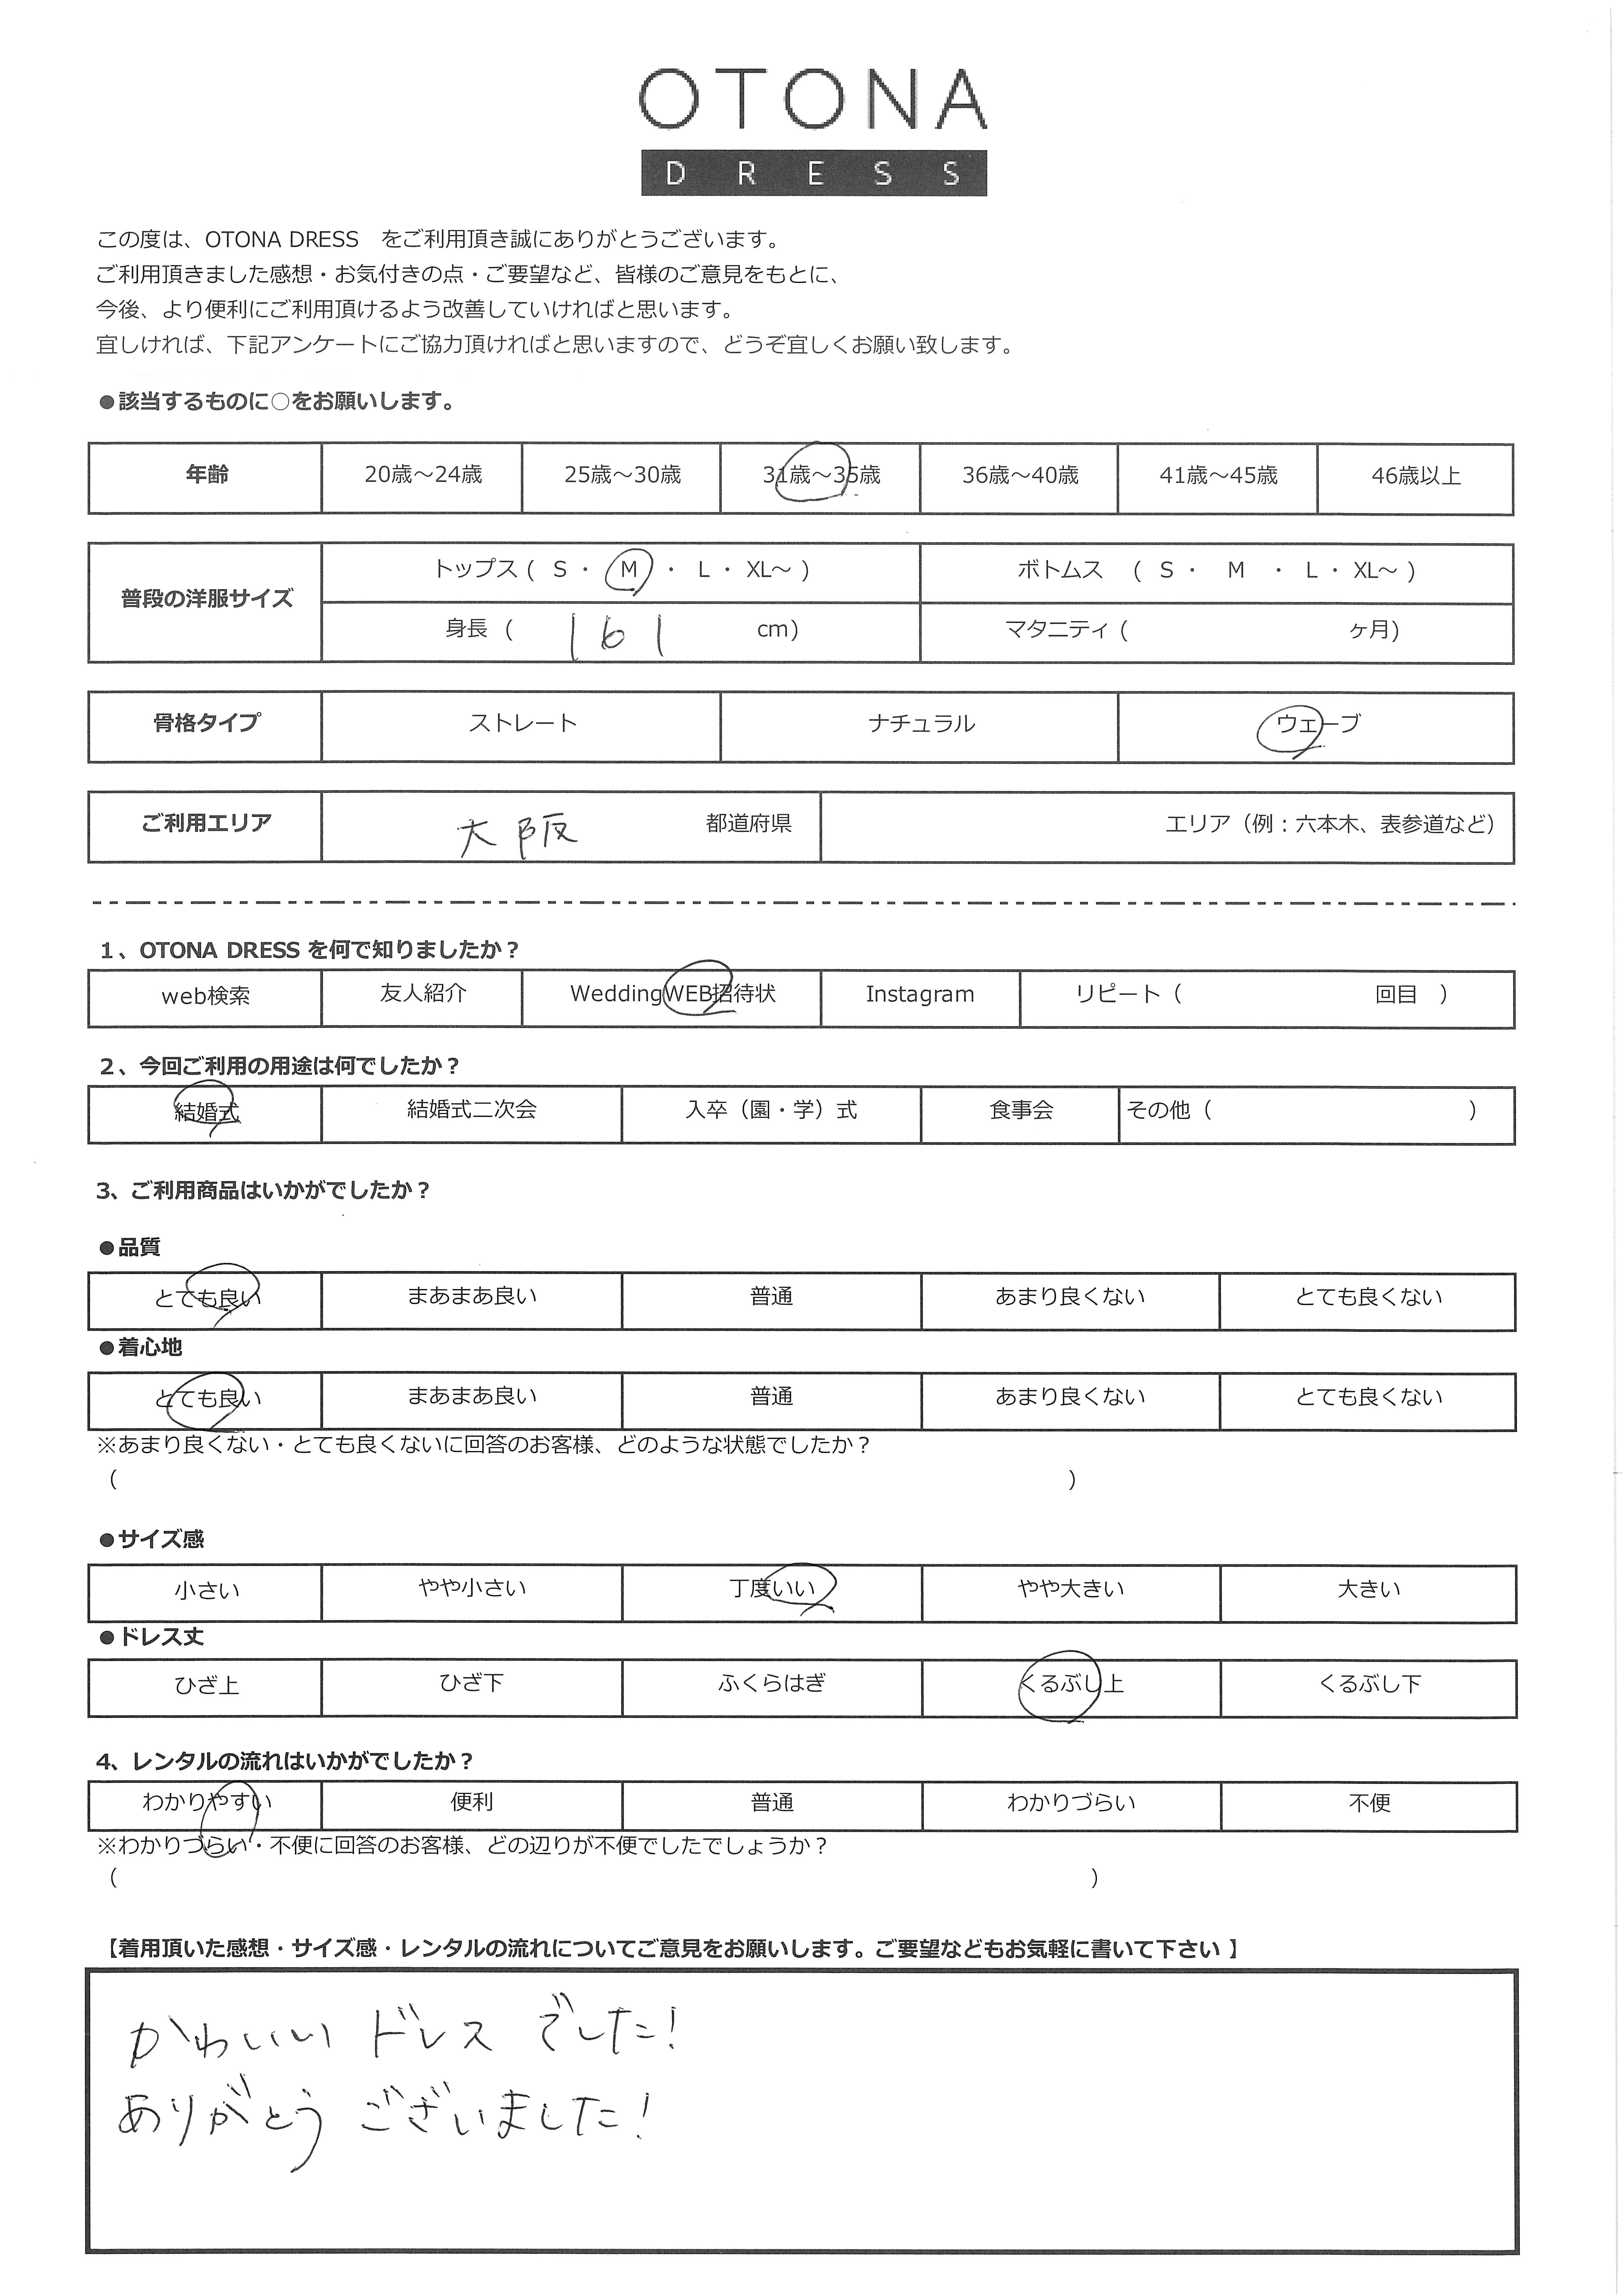 OTONA
DRESS
この度は、OTONA DRESS　をご利用頂き誠にありがとうございます。
ご利用頂きました感想・お気付きの点・ご要望など、皆様のご意見をもとに、
今後、より便利にご利用頂けるよう改善していければと思います。
宜しければ、下記アンケートにご協力頂ければと思いますので、どうぞ宜しくお願い致します。
●該当するものに○をお願いします。
年齢 20歳～24歳 25歳～30歳 31歳～35歳 36歳～40歳 41歳～45歳 46歳以上
普段の洋服サイズ トップス ( S ・ M ・ L ・ XL～ ) ボトムス ( S ・ M ・ L ・ XL～ )
身長 ( 161 cm) マタニティ ( ヶ月)
骨格タイプ ストレート ナチュラル ウェーブ
ご利用エリア 大阪 都道府県 エリア（例：六本木、表参道など）
1、OTONA DRESS を何で知りましたか？
web検索 友人紹介 WeddingWEB招待状 Instagram リピート（ 回目 ）
2、今回ご利用の用途は何でしたか？
結婚式 結婚式二次会 入卒（園・学）式 食事会 その他（ ）
3、ご利用商品はいかがでしたか？
●品質
とても良い まあまあ良い 普通 あまり良くない とても良くない
●着心地
とても良い まあまあ良い 普通 あまり良くない とても良くない
※あまり良くない・とても良くないに回答のお客様、どのような状態でしたか？
（ ）
●サイズ感
小さい やや小さい 丁度いい やや大きい 大きい
●ドレス丈
ひざ上 ひざ下 ふくらはぎ くるぶし上 くるぶし下
4、レンタルの流れはいかがでしたか？
わかりやすい 便利 普通 わかりづらい 不便
※わかりづらい・不便に回答のお客様、どの辺りが不便でしたでしょうか？
（ ）
【着用頂いた感想・サイズ感・レンタルの流れについてご意見をお願いします。ご要望などもお気軽に書いて下さい 】
かわいい ドレス でした!
ありがとう ございました!